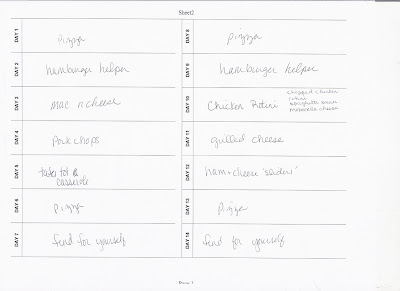 Sheet2
DAY 1
pizzza
DAY 8
pizzza
DAY 2
hamburger helper
DAY 9
hamburger helper
DAY 3
mac n cheese
DAY 10
Chicken Rotini
chopped chicken
rotini
spaghetti sauce
mozzarella cheese
DAY 4
Pork chops
DAY 11
grilled cheese
DAY 5
tater tot
casserole
DAY 12
ham + cheese 'sliders'
DAY 6
pizza
DAY 13
pizza
DAY 7
fend for yourself
DAY 14
fend for yourself
1